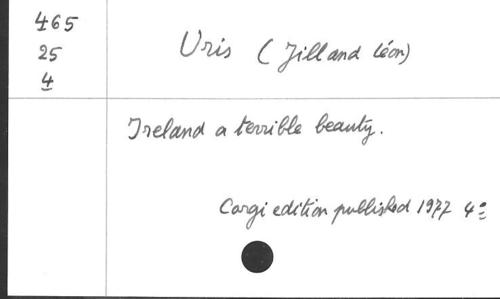 465
25
4
Uris (Jill and Léon)
Ireland a terrible beauty.
Corgi edition published 1977 4º